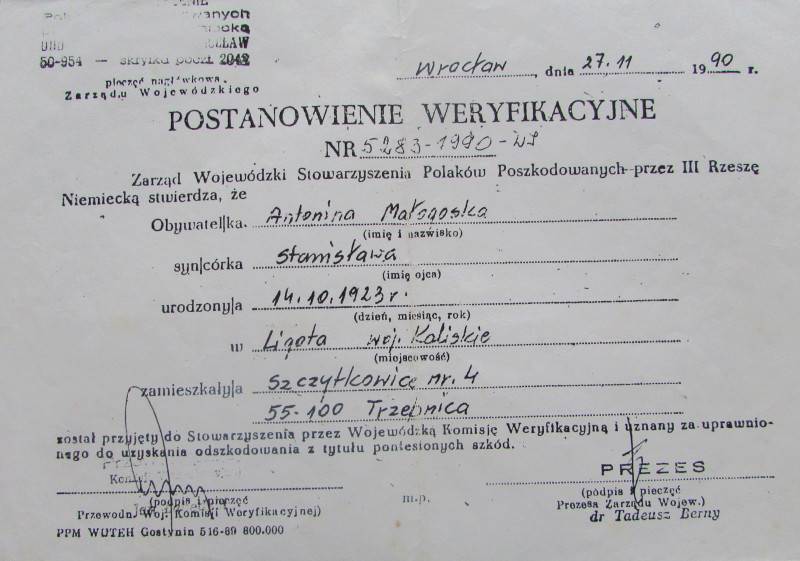 50-954 — skrytka poczt 2042
pieczęć nagłówkowa
Zarządu Wojewódzkiego
Wrocław, dnia 27.11 1990 r.
POSTANOWIENIE WERYFIKACYJNE
NR 5283-1990-
Zarząd Wojewódzki Stowarzyszenia Polaków Poszkodowanych przez III Rzeszę
Niemiecką stwierdza, że
Obywatel|ka. Antonina Małogoska
(imię i nazwisko)
syn|córka Stanisława
(imię ojca)
urodzony|a 14.10.1923 r.
(dzień, miesiąc, rok)
w Ligota woj. Kaliskie
(miejscowość)
zamieszkały|a Szczytkowice nr. 4
55-100 Trzebnica
został przyjęty do Stowarzyszenia przez Wojewódzką Komisję Weryfikacyjną i uznany za uprawnio-
nego do uzyskania odszkodowania z tytułu poniesionych szkód.
PREZES
(podpis i pieczęć
Przewodn. Woj. Komisji Weryfikacyjnej)
m.p.
(podpis i pieczęć
Prezesa Zarządu Wojew.)
dr Tadeusz Berny
PPM WUTEH Gostynin 516-89 800.000